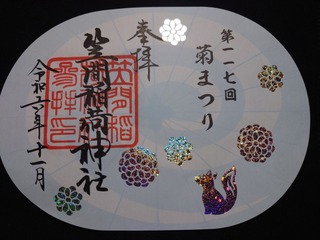 第一一七回
菊まつり
奉拝
笠間稲荷神社
令和六年十一月